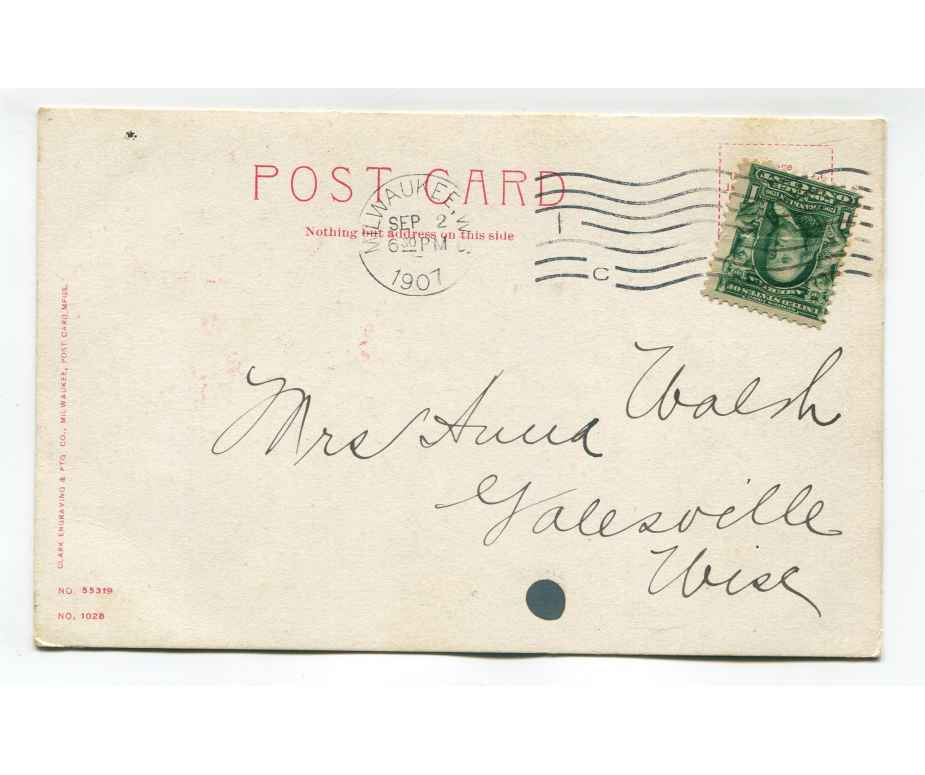 POST CARD
Nothing but address on this side
MILWAUKEE, WIS.
SEP 2
6 30 PM
1907
C
Mrs Anna Walsh
Galesville
Wisc
CLARK ENGRAVING & PTG. CO., MILWAUKEE, POST CARD MFGS.
NO. 55319
NO. 1028